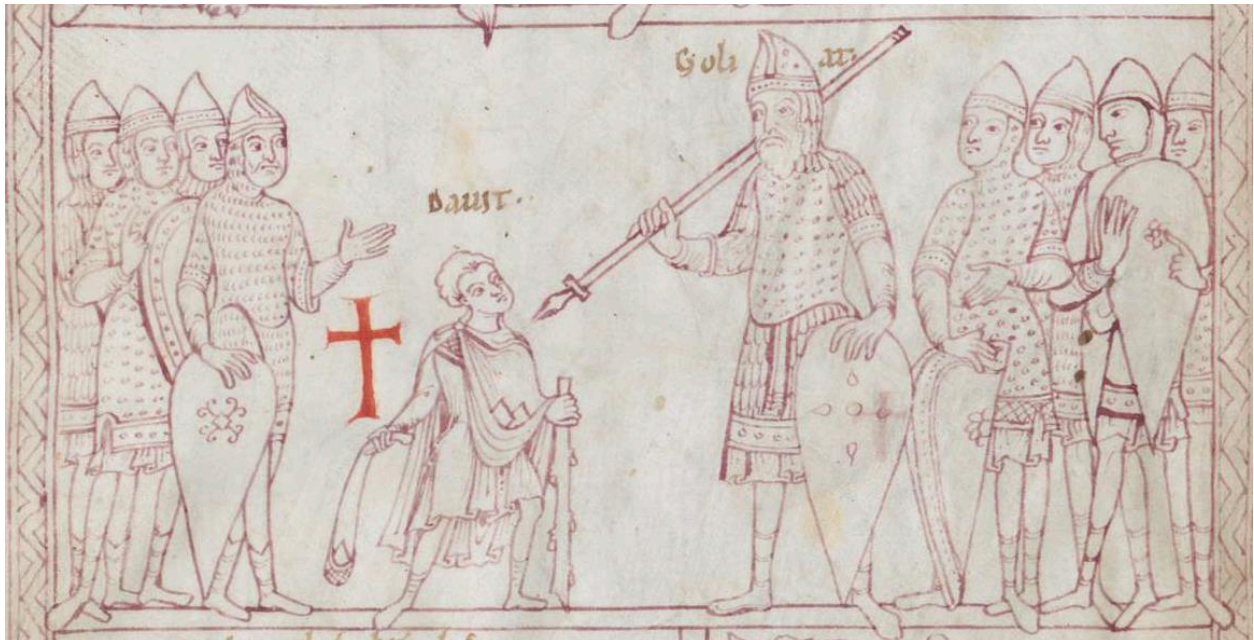 Goliat·
Dauit·